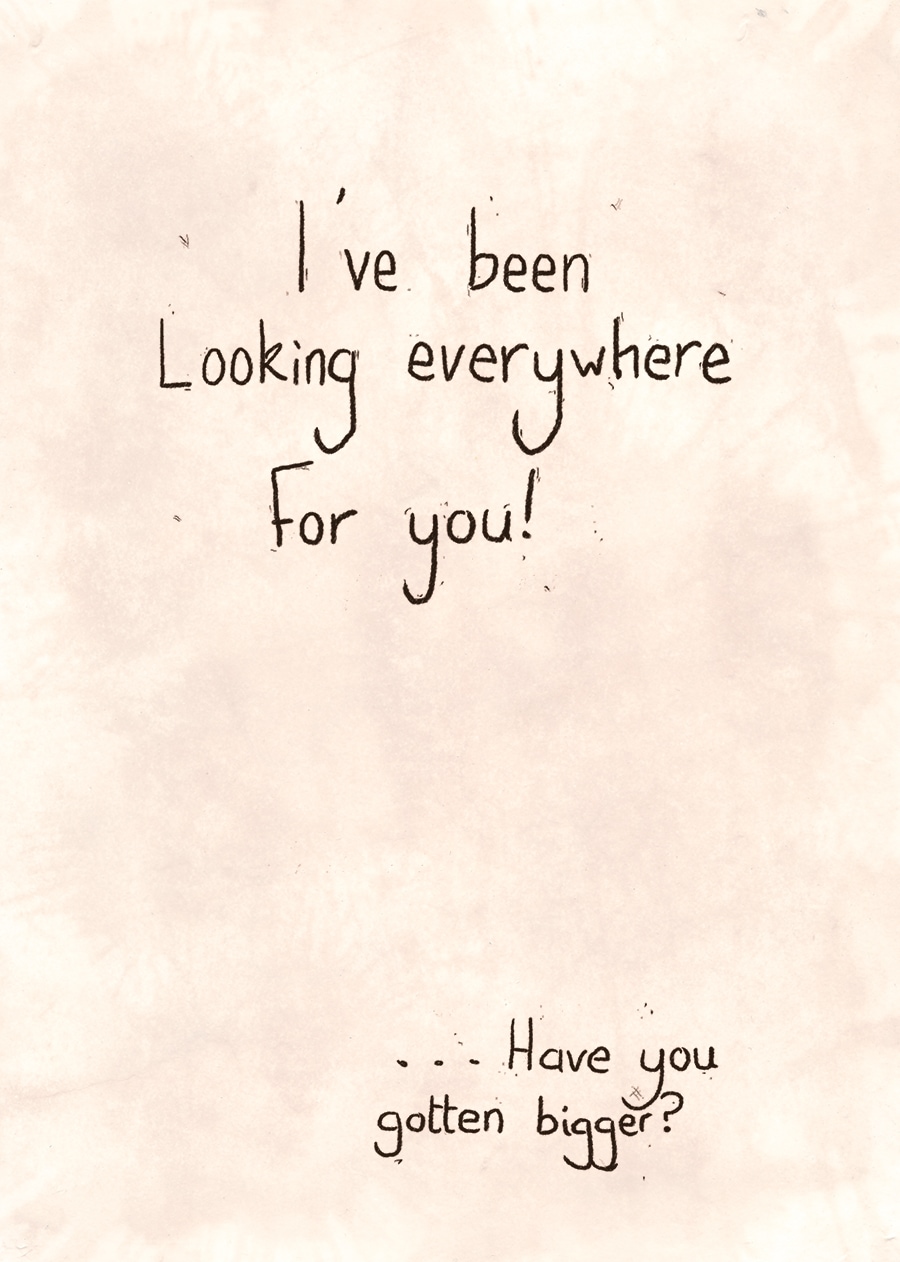 I've been
Looking everywhere
For you!
...Have you
gotten bigger?